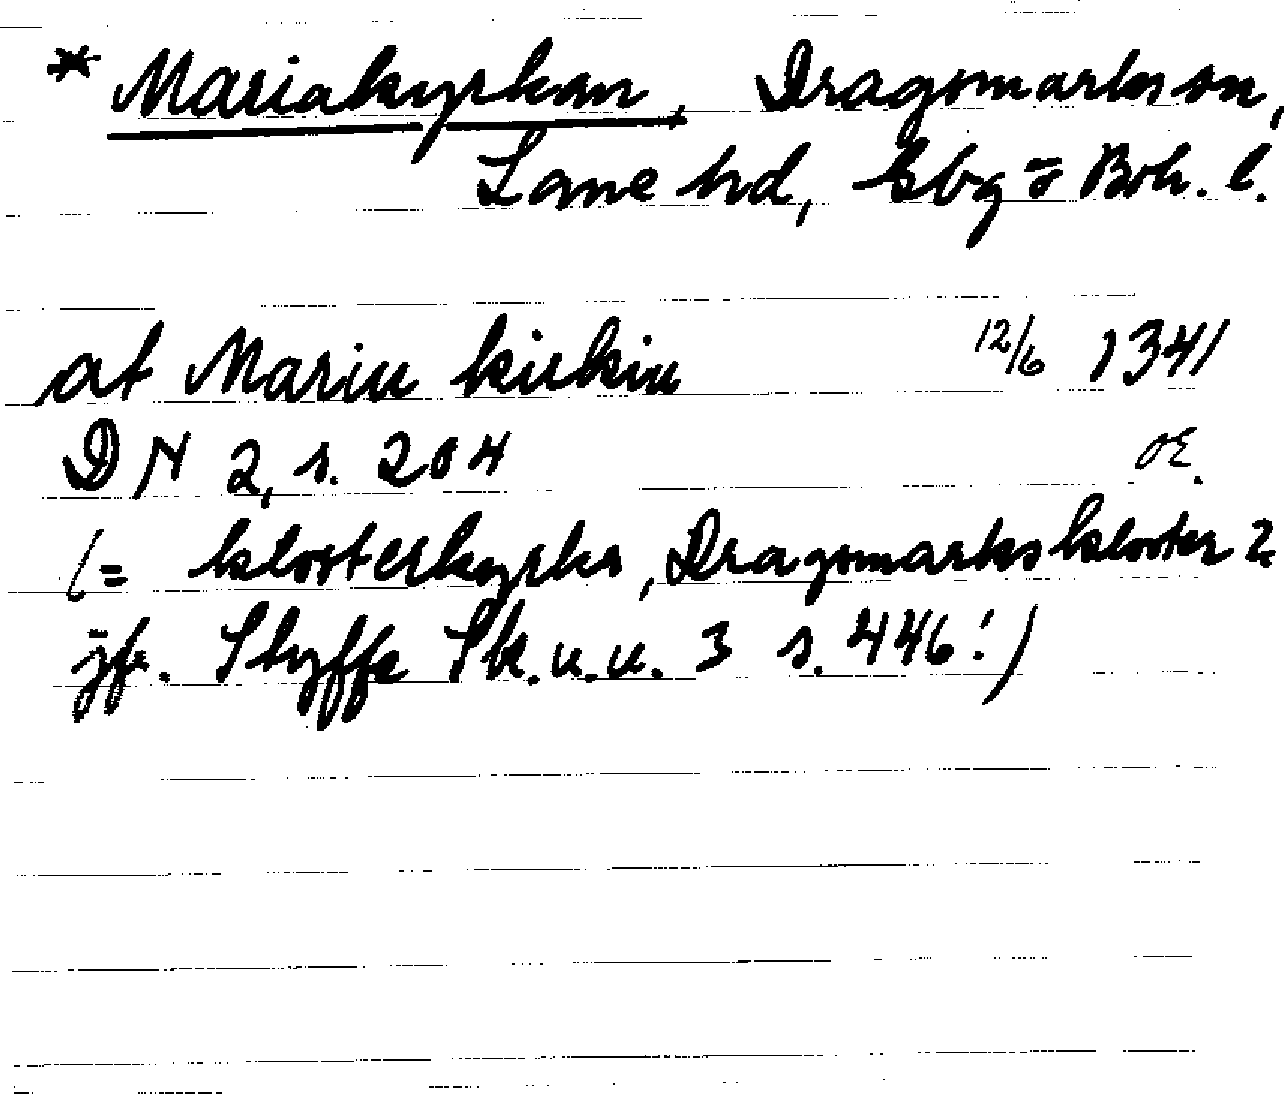 * Mariakyrkan, Dragsmarks sn,
Lane hd, Gbg o Boh. l.
at Mariu kirkiu 12/6 1341
DN 2, s. 204 OE.
(= klosterkyrka, Dragsmarks kloster?
jfr. Styffe Sk. u. u. 3 s. 446!)